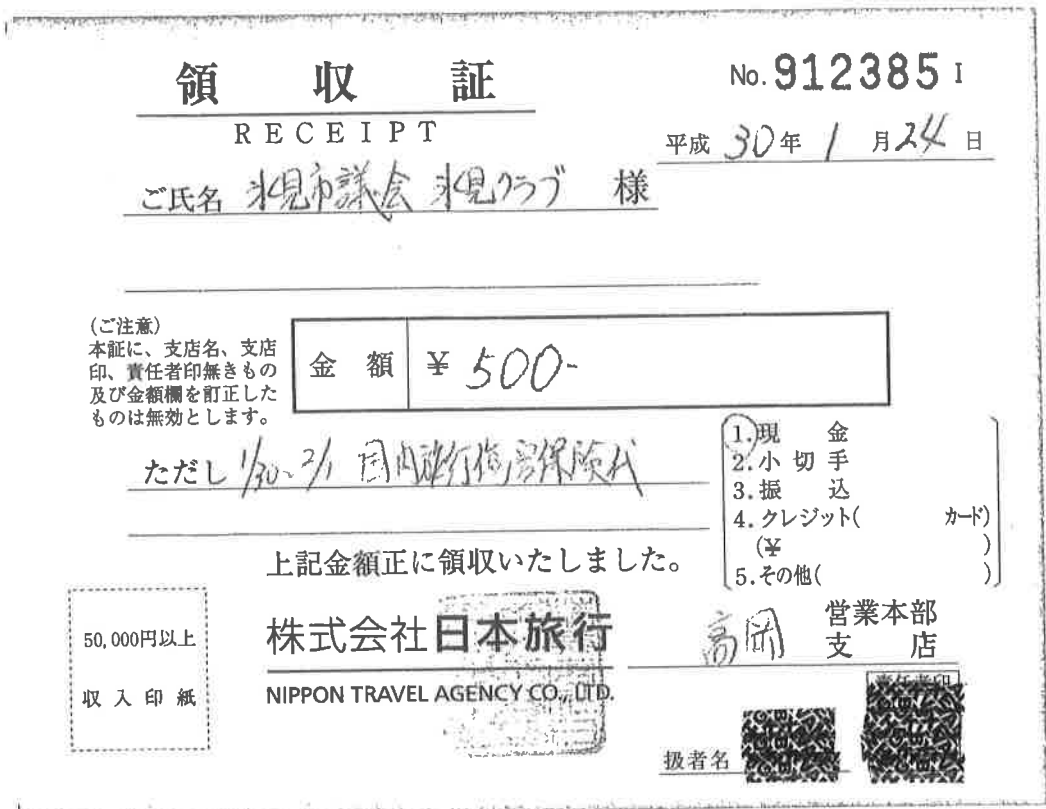 領 収 証
RECEIPT
No. 912385 I
平成 30 年 1 月 24 日
ご氏名 氷見市議会 氷見クラブ 様
(ご注意)
本証に、支店名、支店
印、責任者印無きもの
及び金額欄を訂正した
ものは無効とします。
金 額 ¥ 500-
ただし 1/30~2/1 国内旅行傷害保険代
1.現 金
2.小切手
3.振 込
4.クレジット( カード)
(¥ )
5.その他( )
上記金額正に領収いたしました。
50,000円以上
収入印紙
株式会社日本旅行
NIPPON TRAVEL AGENCY CO., LTD.
高岡 営業本部
支 店
責任者印
扱者名